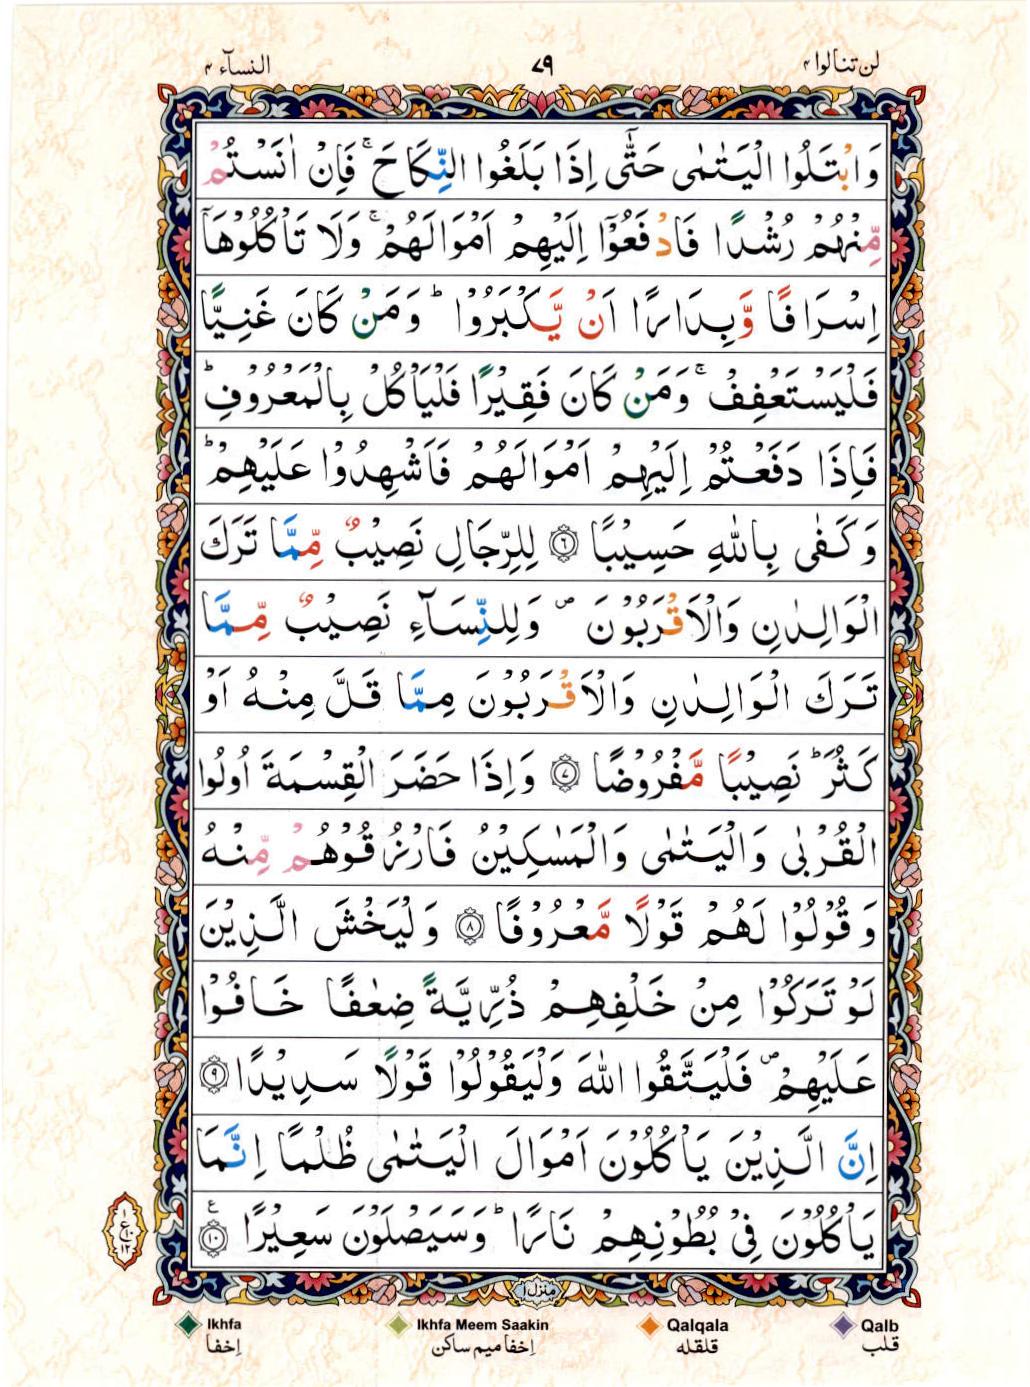 لن تنالوا ۴ ۷۹ النسآء ۴
وَابْتَلُوا الْيَتٰمٰى حَتّٰٓى اِذَا بَلَغُوا النِّكَاحَ ۚ فَاِنْ اٰنَسْتُمْ
مِّنْهُمْ رُشْدًا فَادْفَعُوْٓا اِلَيْهِمْ اَمْوَالَهُمْ ۚ وَلَا تَاْكُلُوْهَآ
اِسْرَافًا وَّبِدَارًا اَنْ يَّكْبَرُوْا ؕ وَمَنْ كَانَ غَنِيًّا
فَلْيَسْتَعْفِفْ ۚ وَمَنْ كَانَ فَقِيْرًا فَلْيَاْكُلْ بِالْمَعْرُوْفِ ؕ
فَاِذَا دَفَعْتُمْ اِلَيْهِمْ اَمْوَالَهُمْ فَاَشْهِدُوْا عَلَيْهِمْ ؕ
وَكَفٰى بِاللّٰهِ حَسِيْبًا ۶ لِلرِّجَالِ نَصِيْبٌ مِّمَّا تَرَكَ
الْوَالِدٰنِ وَالْاَقْرَبُوْنَ ۪ وَلِلنِّسَآءِ نَصِيْبٌ مِّمَّا
تَرَكَ الْوَالِدٰنِ وَالْاَقْرَبُوْنَ مِمَّا قَلَّ مِنْهُ اَوْ
كَثُرَ ؕ نَصِيْبًا مَّفْرُوْضًا ۷ وَاِذَا حَضَرَ الْقِسْمَةَ اُولُوا
الْقُرْبٰى وَالْيَتٰمٰى وَالْمَسٰكِيْنُ فَارْزُقُوْهُمْ مِّنْهُ
وَقُوْلُوْا لَهُمْ قَوْلًا مَّعْرُوْفًا ۸ وَلْيَخْشَ الَّذِيْنَ
لَوْ تَرَكُوْا مِنْ خَلْفِهِمْ ذُرِّيَّةً ضِعٰفًا خَافُوْا
عَلَيْهِمْ ۪ فَلْيَتَّقُوا اللّٰهَ وَلْيَقُوْلُوْا قَوْلًا سَدِيْدًا ۹
اِنَّ الَّذِيْنَ يَاْكُلُوْنَ اَمْوَالَ الْيَتٰمٰى ظُلْمًا اِنَّمَا
يَاْكُلُوْنَ فِيْ بُطُوْنِهِمْ نَارًا ؕ وَسَيَصْلَوْنَ سَعِيْرًا ۱۰ ع
۱
ع ۱۰
۱۲
منزل ۱
Ikhfa Ikhfa Meem Saakin Qalqala Qalb
اِخفا اِخفا میم ساکن قلقله قلب